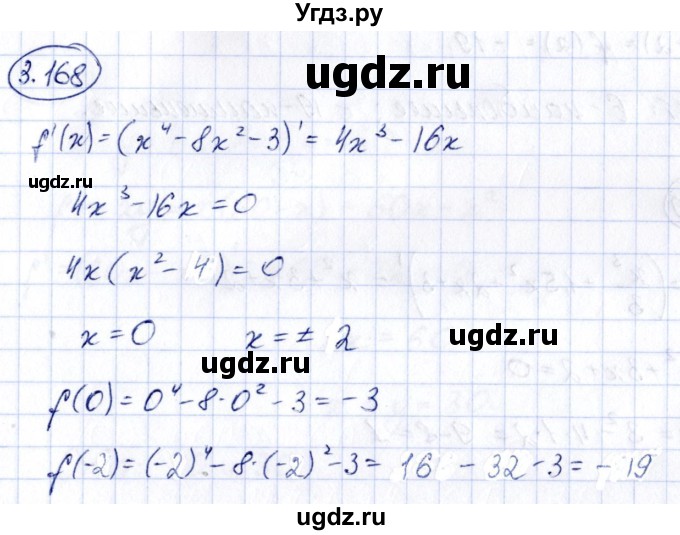 Угдз.ру
3.168
ugdz.ru
f'(x) = (x⁴ - 8x² - 3)' = 4x³ - 16x
ugdz.ru
4x³ - 16x = 0
4x(x² - 4) = 0
x = 0 x = ± 2
ugdz.ru
ugdz.ru
f(0) = 0⁴ - 8·0² - 3 = -3
f(-2) = (-2)⁴ - 8·(-2)² - 3 = 16 - 32 - 3 = -19
ugdz.ru
ugdz.ru